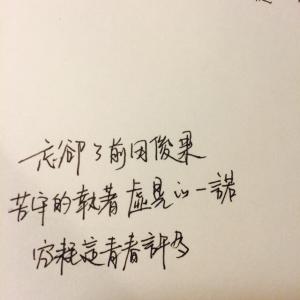 忘卻了前因俊果
苦守的執著虛晃的一諾
空耗這青春許多